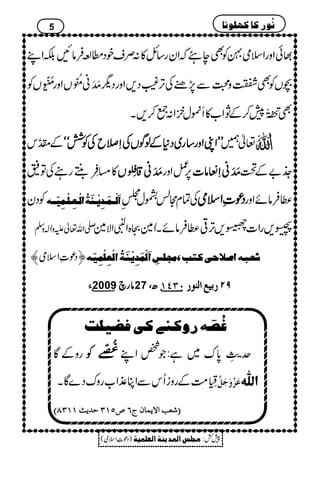 نُور کا کھلونا
5
بھائی اور اسلامی بہن کو بھی چاہئے کہ ان رسائل کا نہ صرف خود مطالعہ فرمائیں بلکہ اپنے
بچوں کو بھی شفقت و محبت سے پڑھنے کی ترغیب دیں اور دیگر مَدَنی مُنّوں اور مُنِّیوں کو
بھی تحفۃً پیش کر کے ثواب کا اَنمول خزانہ جمع کریں۔
اللہ تعالیٰ ہمیں ”اپنی اور ساری دنیا کے لوگوں کی اِصلاح کی کوشش“ کے مقدّس
جذبے کے تحت مَدَنی اِنعامات پر عمل اور مَدَنی قافِلوں کا مسافر بنتے رہنے کی توفیق
عطا فرمائے اور دعوتِ اسلامی کی تمام مجالس بشمول مجلس اَلْمَدِیْنَۃُ الْعِلْمِیَہ کو دن
پچیسویں رات چھبیسویں ترقی عطا فرمائے۔ امین بجاہ النبی الامین صلی اللہ تعالیٰ علیہ والہ وسلم
شعبہ اصلاحی کتب ،مجلسِ اَلْمَدِیْنَۃُ الْعِلْمِیَہ ﴿دعوتِ اسلامی﴾
۲۹ ربیع النور ۱۴۳۰ھ، 27 مارچ 2009ء
غُصّہ روکنے کی فضیلت
حدیثِ پاک میں ہے: جو شخص اپنے غُصّے کو روکے گا
اللہ عَزَّوَجَلَّ قِیامت کے روز اُس سے اپنا عذاب روک دے گا۔
(شعب الایمان ج۶ ص۳۱۵ حدیث ۸۳۱۱)
پیش کش: مجلس المدینۃ العلمیۃ (دعوتِ اسلامی)